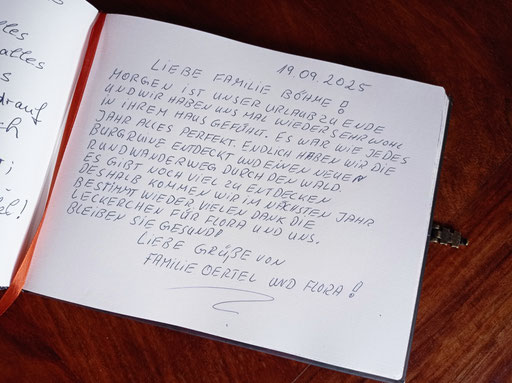 lles
alles
s
drauf
ch
i
el!
19.09.2025
LIEBE FAMILIE BÖHME!
MORGEN IST UNSER URLAUB ZU ENDE
UND WIR HABEN UNS MAL WIEDER SEHR WOHL
IN IHREM HAUS GEFÜHLT. ES WAR WIE JEDES
JAHR ALLES PERFEKT. ENDLICH HABEN WIR DIE
BURGRUINE ENTDECKT UND EINEN NEUEN
RUNDWANDERWEG DURCH DEN WALD.
ES GIBT NOCH VIEL ZU ENTDECKEN
DESHALB KOMMEN WIR IM NÄCHSTEN JAHR
BESTIMMT WIEDER. VIELEN DANK DIE
LECKERCHEN FÜR FLORA UND UNS.
BLEIBEN SIE GESUND!
LIEBE GRÜßE VON
FAMILIE OERTEL UND FLORA!